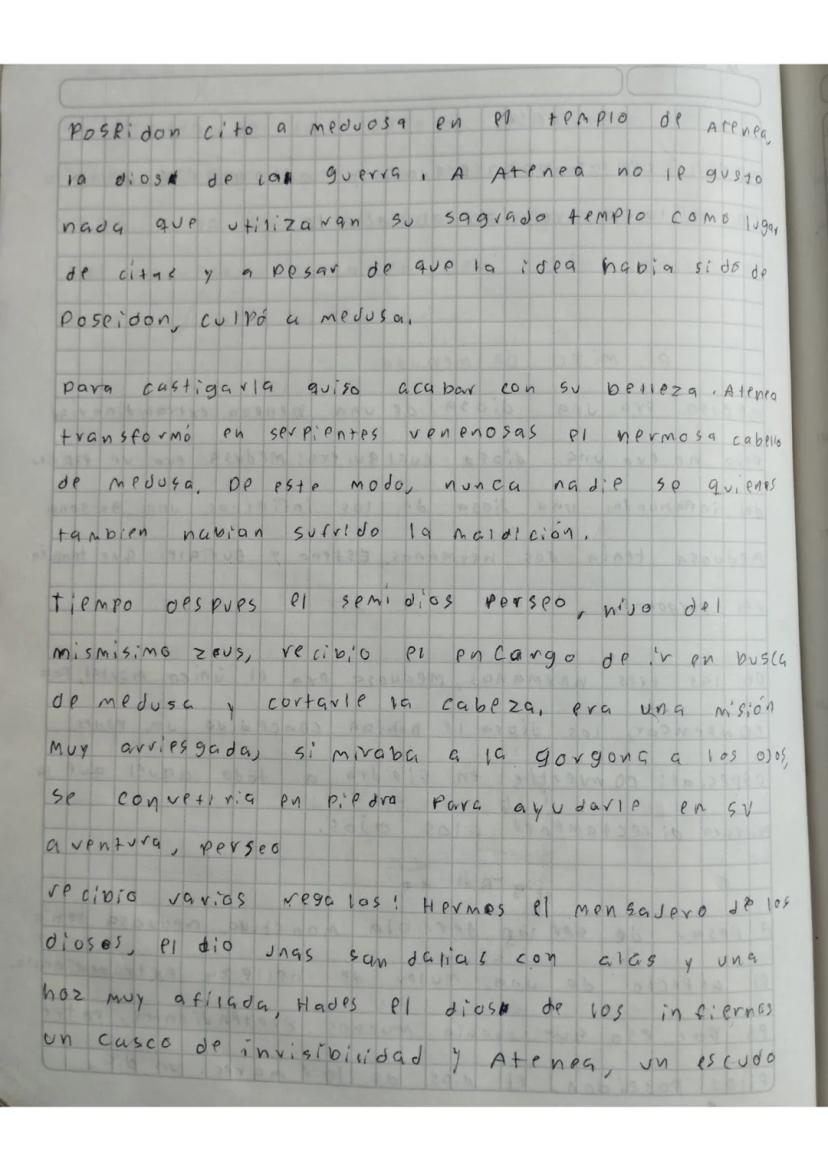 Poseidon cito a meduosa en el templo de Atenea,
la dios de la guerra. A Atenea no le gusto
nada que utilizaran su sagrado templo como lugar
de citas y a pesar de que la idea habia sido de
Poseidon, culpó a medusa.
para castigarla quiso acabar con su belleza. Atenea
transformó en serpientes venenosas el hermosa cabello
de medusa. De este modo, nunca nadie se quienes
tambien habian sufrido la maldición.
tiempo despues el semidios perseo, hijo del
mismisimo zeus, recibio el encargo de ir en busca
de medusa y cortarle la cabeza, era una misión
muy arriesgada, si miraba a la gorgona a los ojos,
se convetiria en piedra para ayudarle en su
aventura, perseo
recibio varios regalos! Hermes el mensajero de los
dioses, el dio unas sandalias con alas y una
hoz muy afilada, Hades el dios de los infiernos
un casco de invisibilidad y Atenea, un escudo